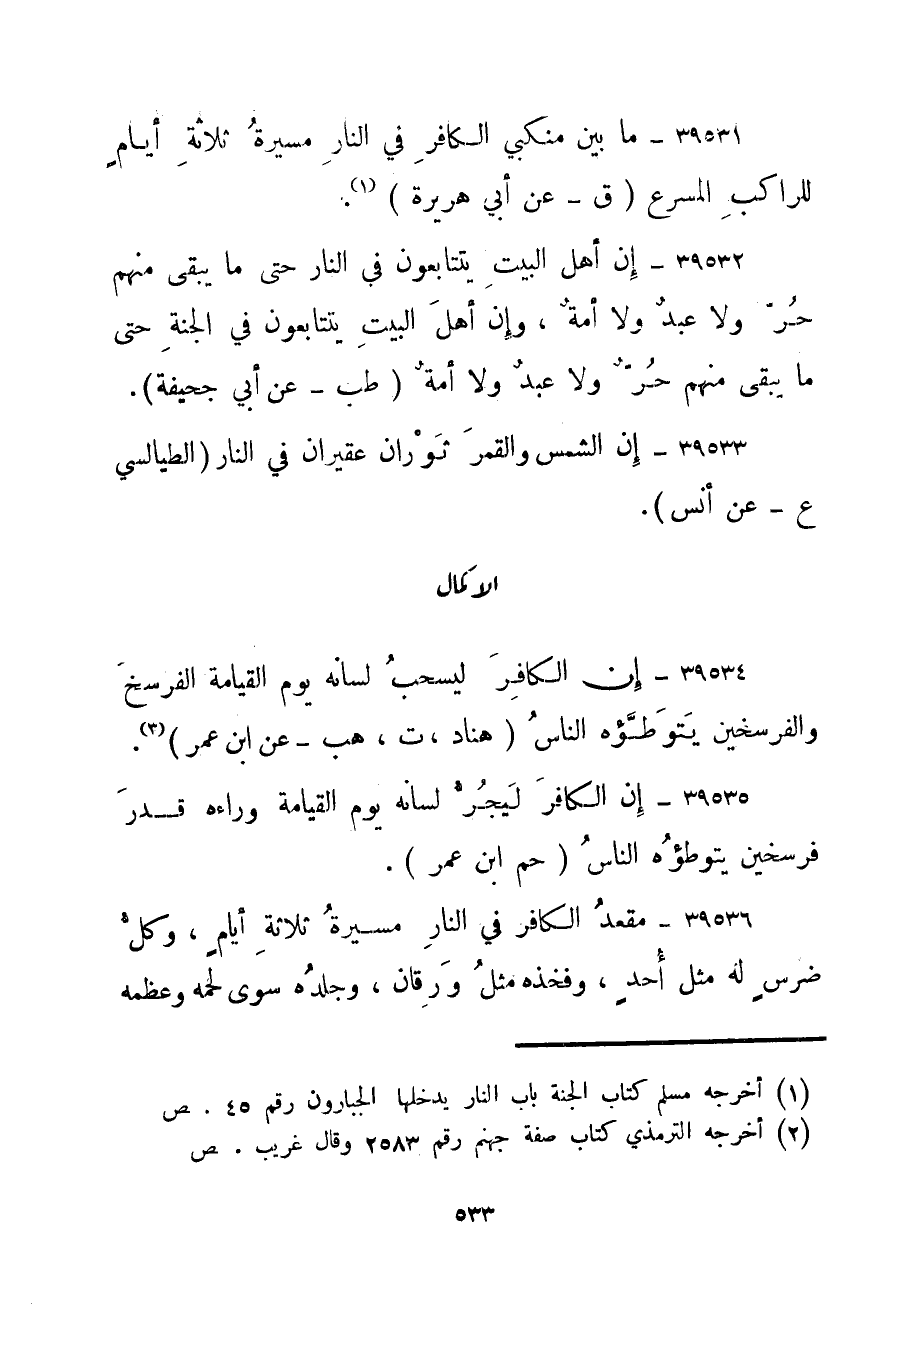 ٣٩٥٣١ ـ ما بين منكبي الكافرِ في النارِ مسيرةُ ثلاثةِ أيامٍ
للراكبِ المسرع ( ق ـ عن أبي هريرة )(١).
٣٩٥٣٢ ـ إن أهل البيتِ يتتابعون في النار حتى ما يبقى منهم
حُرّ ولا عبدٌ ولا أمةٌ ، وإن أهلَ البيتِ يتتابعون في الجنةِ حتى
ما يبقى منهم حُرّ ٌ ولا عبدٌ ولا أمةٌ ( طب ـ عن أبي جحيفة).
٣٩٥٣٣ ـ إن الشمس والقمرَ ثَوْران عقيران في النار (الطيالسي
ع ـ عن أنس).
الاكمال
٣٩٥٣٤ ـ إن الكافِرَ ليسحبُ لسانه يوم القيامة الفرسخَ
والفرسخين يَتَوَطَّؤه الناسُ ( هناد ، ت ، هب ـ عن ابن عمر )(٣).
٣٩٥٣٥ ـ إن الكافرَ لَيجُرُّ لسانه يوم القيامة وراءه قدرَ
فرسخين يتوطؤُه الناسُ ( حم ابن عمر ) .
٣٩٥٣٦ ـ مقعدُ الكافر في النارِ مسيرةُ ثلاثةِ أيامٍ ، وكلُّ
ضرسٍ له مثل أُحدٍ ، وفخذه مثلُ وَرِقان ، وجلدُه سوى لحمه وعظمه
(١) أخرجه مسلم كتاب الجنة باب النار يدخلها الجبارون رقم ٤٥ . ص
(٢) أخرجه الترمذي كتاب صفة جهنم رقم ٢٥٨٣ وقال غريب . ص
٥٣٣